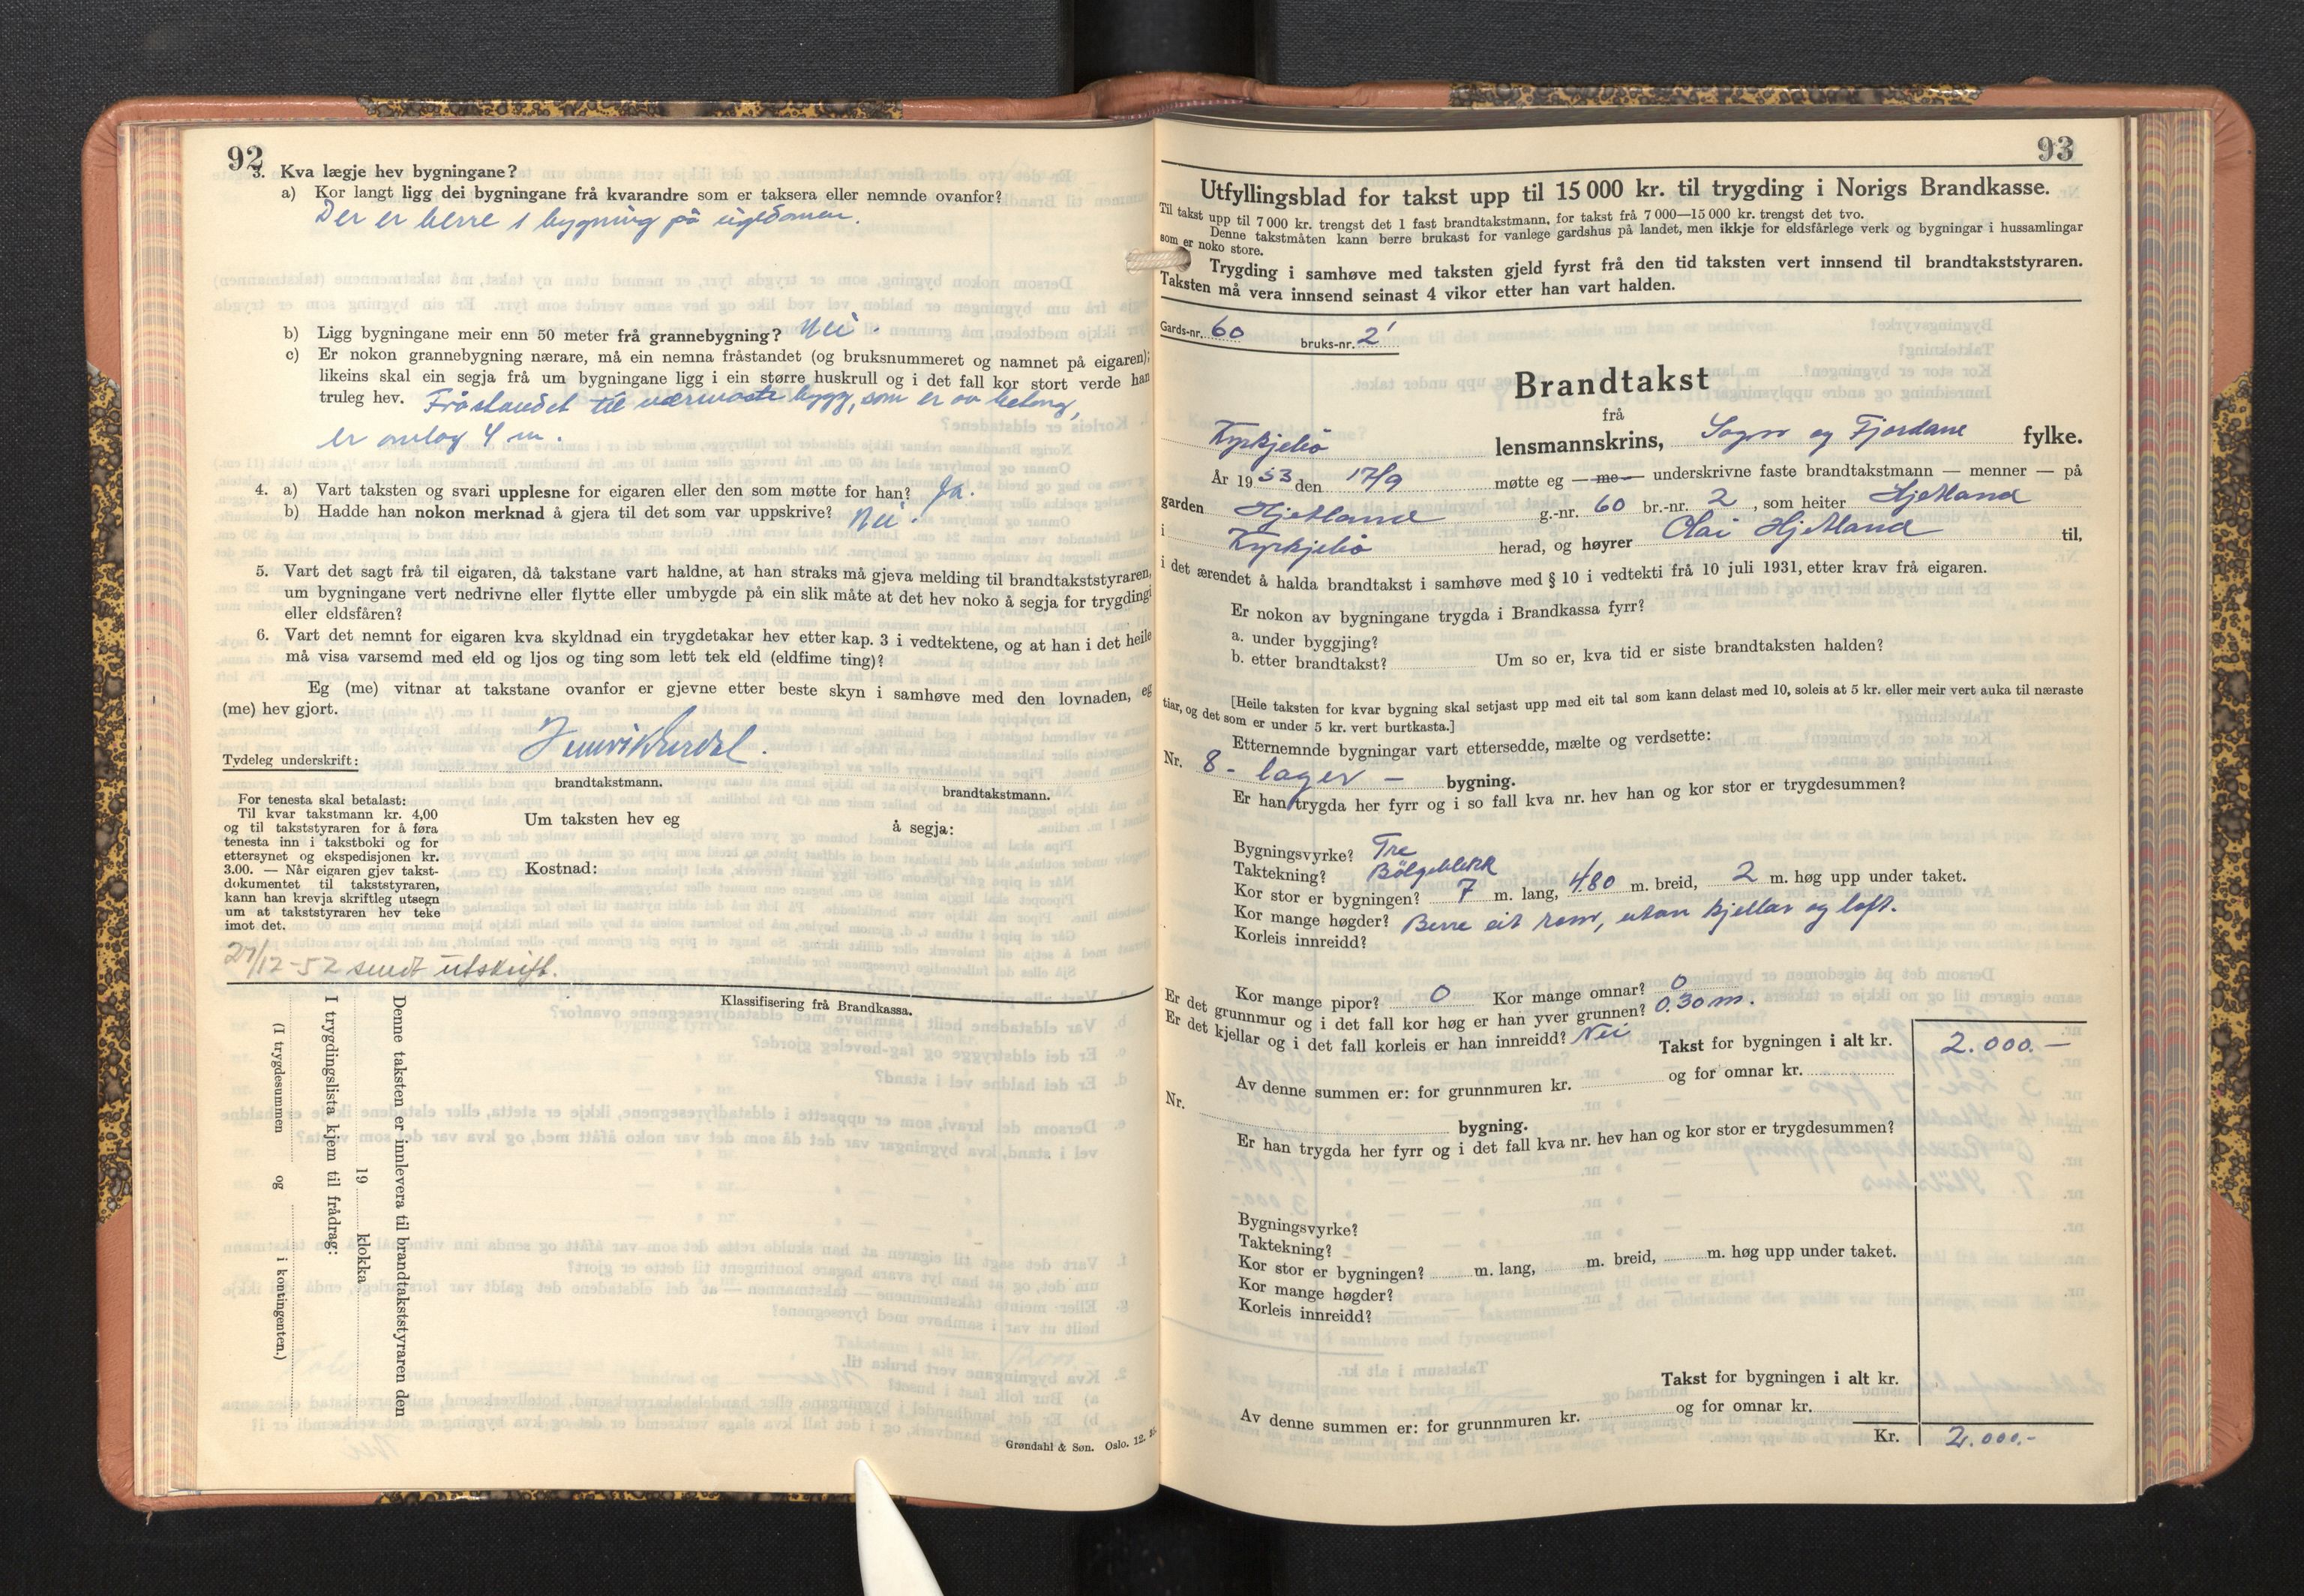 92
3. Kva lægje hev bygningane?
a) Kor langt ligg dei bygningane frå kvarandre som er taksera eller nemnde ovanfor?
Der er berre 1 bygning på eigedomen.
b) Ligg bygningane meir enn 50 meter frå grannebygning? Nei.
c) Er nokon grannebygning nærare, må ein nemna fråstandet (og bruksnummeret og namnet på eigaren);
likeins skal ein segja frå um bygningane ligg i ein større huskrull og i det fall kor stort verde han
truleg hev. Fråstandet til nærmaste bygg, som er av betong,
er omlag 4 m.
4. a) Vart taksten og svari upplesne for eigaren eller den som møtte for han? Ja.
b) Hadde han nokon merknad å gjera til det som var uppskrive? Nei.
5. Vart det sagt frå til eigaren, då takstane vart haldne, at han straks må gjeva melding til brandtakststyraren,
um bygningane vert nedrivne eller flytte eller umbygde på ein slik måte at det hev noko å segja for trygdingi
eller eldsfåren?
6. Vart det nemnt for eigaren kva skyldnad ein trygdetakar hev etter kap. 3 i vedtektene, og at han i det heile
må visa varsemd med eld og ljos og ting som lett tek eld (eldfime ting)?
Eg (me) vitnar at takstane ovanfor er gjevne etter beste skyn i samhøve med den lovnaden, eg
(me) hev gjort.
Tydeleg underskrift:
brandtakstmann.
brandtakstmann.
For tenesta skal betalast:
Til kvar takstmann kr. 4,00
og til takststyraren for å føra
tenesta inn i takstboki og for
ettersynet og ekspedisjonen kr.
3.00. — Når eigaren gjev takst-
dokumentet til takststyraren,
kann han krevja skriftleg utsegn
um at takststyraren hev teke
imot det.
Um taksten hev eg å segja:
Kostnad:
27/12-52 sendt utskrift.
Klassifisering frå Brandkassa.
Denne taksten er innlevera til brandtakststyraren den
19 klokka
I trygdingslista kjem til frådrag:
(I trygdesummen og i kontingenten.)
Grøndahl & Søn. Oslo. 12.
93
Utfyllingsblad for takst upp til 15 000 kr. til trygding i Norigs Brandkasse.
Til takst upp til 7 000 kr. trengst det 1 fast brandtakstmann, for takst frå 7 000—15 000 kr. trengst det tvo.
Denne takstmåten kann berre brukast for vanlege gardshus på landet, men ikkje for eldsfårlege verk og bygningar i hussamlingar
som er noko store.
Trygding i samhøve med taksten gjeld fyrst frå den tid taksten vert innsend til brandtakststyraren.
Taksten må vera innsend seinast 4 vikor etter han vart halden.
Gards-nr. 60 bruks-nr. 2
Brandtakst
frå
Kyrkjebø lensmannskrins, Sogn og Fjordane fylke.
År 1953 den 17/9 møtte eg — me — underskrivne faste brandtakstmann — menner — på
garden Hjetland g.-nr. 60 br.-nr. 2, som heiter Hjetland
i Kyrkjebø herad, og høyrer Olai Hjetland til,
i det ærendet å halda brandtakst i samhøve med § 10 i vedtekti frå 10 juli 1931, etter krav frå eigaren.
Er nokon av bygningane trygda i Brandkassa fyrr?
a. under byggjing?
b. etter brandtakst? Um so er, kva tid er siste brandtaksten halden?
[Heile taksten for kvar bygning skal setjast upp med eit tal som kann delast med 10, soleis at 5 kr. eller meir vert auka til næraste
tiar, og det som er under 5 kr. vert burtkasta.]
Etternemnde bygningar vart ettersedde, mælte og verdsette:
Nr. 8 - lager - bygning.
Er han trygda her fyrr og i so fall kva nr. hev han og kor stor er trygdesummen?
Bygningsvyrke? Tre
Taktekning? Bölgeblekk
Kor stor er bygningen? 7 m. lang, 4,80 m. breid, 2 m. høg upp under taket.
Kor mange høgder? Berre eit rom, utan kjellar og loft.
Korleis innreidd?
Kor mange pipor? 0 Kor mange omnar? 0
Er det grunnmur og i det fall kor høg er han yver grunnen? 0.30 m.
Er det kjellar og i det fall korleis er han innreidd? Nei
Takst for bygningen i alt kr. 2.000.—
Av denne summen er: for grunnmuren kr. og for omnar kr.
Nr. bygning.
Er han trygda her fyrr og i det fall kva nr. hev han og kor stor er trygdesummen?
Bygningsvyrke?
Taktekning?
Kor stor er bygningen? m. lang, m. breid, m. høg upp under taket.
Kor mange høgder?
Korleis innreidd?
Takst for bygningen i alt kr.
Av denne summen er: for grunnmuren kr. og for omnar kr.
Kr. 2.000.-